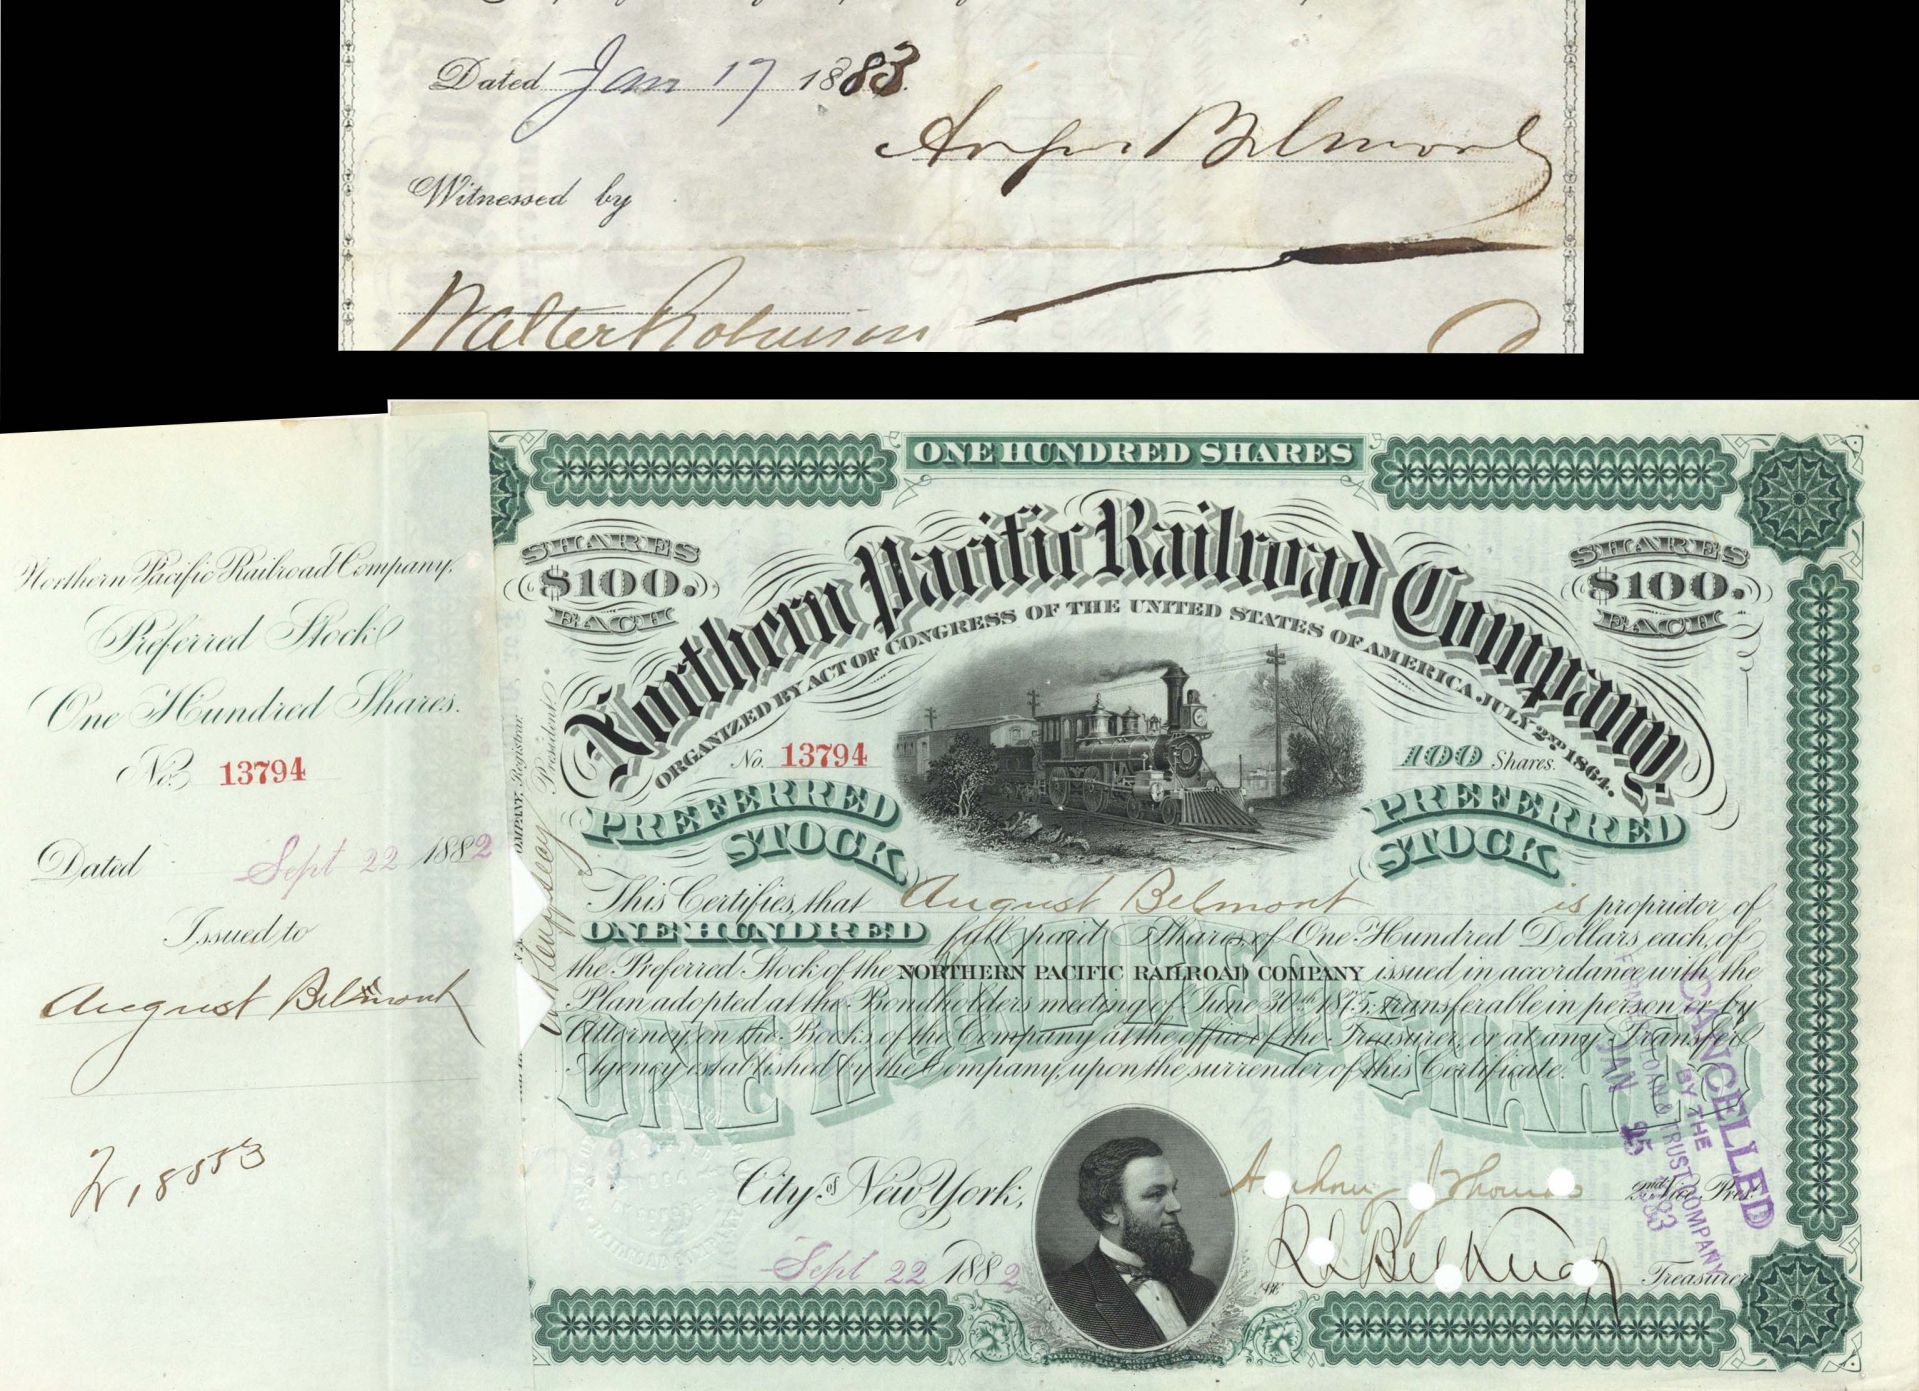 Dated Jan 17 1883.
August Belmont
Witnessed by
Walter Robinson
Northern Pacific Railroad Company.
Preferred Stock
One Hundred Shares.
No. 13794
Dated Sept 22 1882
Issued to
August Belmont
ONE HUNDRED SHARES
SHARES
$100.
EACH
SHARES
$100.
EACH
Northern Pacific Railroad Company.
ORGANIZED BY ACT OF CONGRESS OF THE UNITED STATES OF AMERICA JULY 2ND 1864.
No. 13794
100 Shares.
PREFERRED STOCK
PREFERRED STOCK
COMPANY, Registrar.
President.
This Certifies, that August Belmont is proprietor of
ONE HUNDRED full paid Shares, of One Hundred Dollars, each, of
the Preferred Stock of the NORTHERN PACIFIC RAILROAD COMPANY issued in accordance with the
Plan adopted at the Bondholders meeting of June 30th 1875, transferable in person or by
Attorney, on the Books of the Company at the office of the Treasurer, or at any Transfer
Agency established by the Company, upon the surrender of this Certificate.
ONE HUNDRED SHARES
City of New York,
Sept 22 1882
Anthony J Thomas 2nd Vice Pres.
Treasurer
CANCELLED
BY THE
LOAN & TRUST COMPANY
JAN 25 83